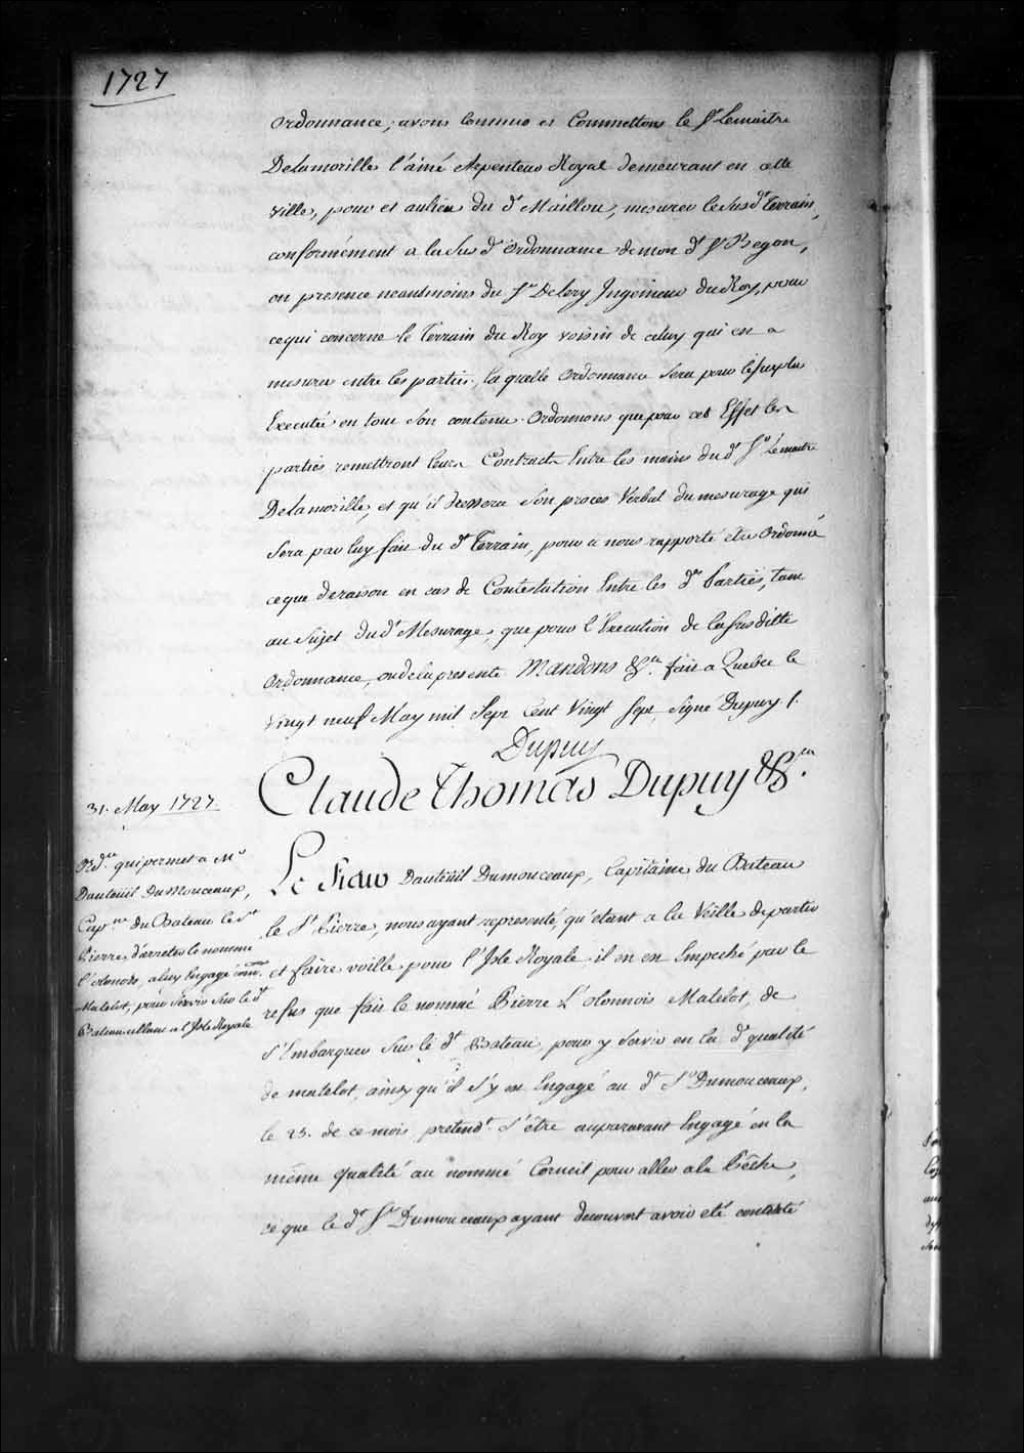 1727
Ordonnance, avons Commis et Commettons le Sr Lemaitre
Delamorille l'ainé Arpenteur Royal demeurant en cette
ville, pour et aulieu du dt Maillou, mesurer le Sus dt Terrain,
conformément a la Sus dte Ordonnance de mon dt Sr Begon,
en presence neantmoins du Sr Delery Ingenieur du Roy, pour
ce qui concerne le Terrain du Roy voisin de celuy qui en a
mesurer entre les parties, laquelle Ordonnance Sera pour le Surplus
Executée en tout Son contenu. Ordonnons que pour cet Effet les
parties remettront leurs Contracts Entre les mains du dt Sr Lemaitre
Delamorille, et qu'il dressera Son procès Verbal du mesurage qui
Sera par luy fait du dt Terrain, pour a nous rapporté être Ordonné
ce que de raison en cas de Contestation Entre les des Parties, tant
au Sujet du dt Mesurage, que pour l'Execution de la Sus ditte
Ordonnance, ou de la presente Mandons &ca. fait a Quebec le
Vingt neuf May mil Sept Cent Vingt Sept, Signé Dupuy /.
Dupuy
Claude Thomas Dupuy &ca.
31. May 1727.
Ordce. qui permet a Mr
Dauteüil Du Monceaux,
Capne du Bateau le St
Pierre, d'arreter le nommé
l'olonois, a luy Engagé comme
Matelot, pour Servir Sur le dt
Bateau allant a l'Isle Royale
Le Sieur Dauteüil Dumonceaux, Capitaine du Bateau
le St Pierre, nous ayant representé, qu'étant a la Veille de partir
et faire voille pour l'Isle Royale il en est Empeché par le
refus que fait le nommé Pierre L'olonnois Matelot, de
S'Embarquer Sur le dt Bateau, pour y Servir en la de qualité
de matelot, ainsy qu'il S'y est Engagé au dt Sr Dumonceaux,
le 23. de ce mois, pretendt. S'être auparavant Engagé en la
même qualité au nommé Corneil pour aller a la Pêche,
ce que le dt Sr Dumonceaux ayant decouvert avoir été contesté